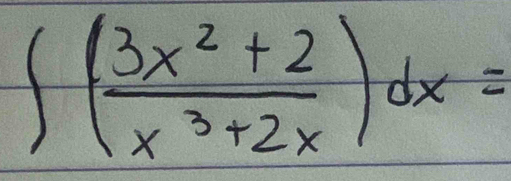 ∫ ((3x² + 2)/(x³ + 2x)) dx =